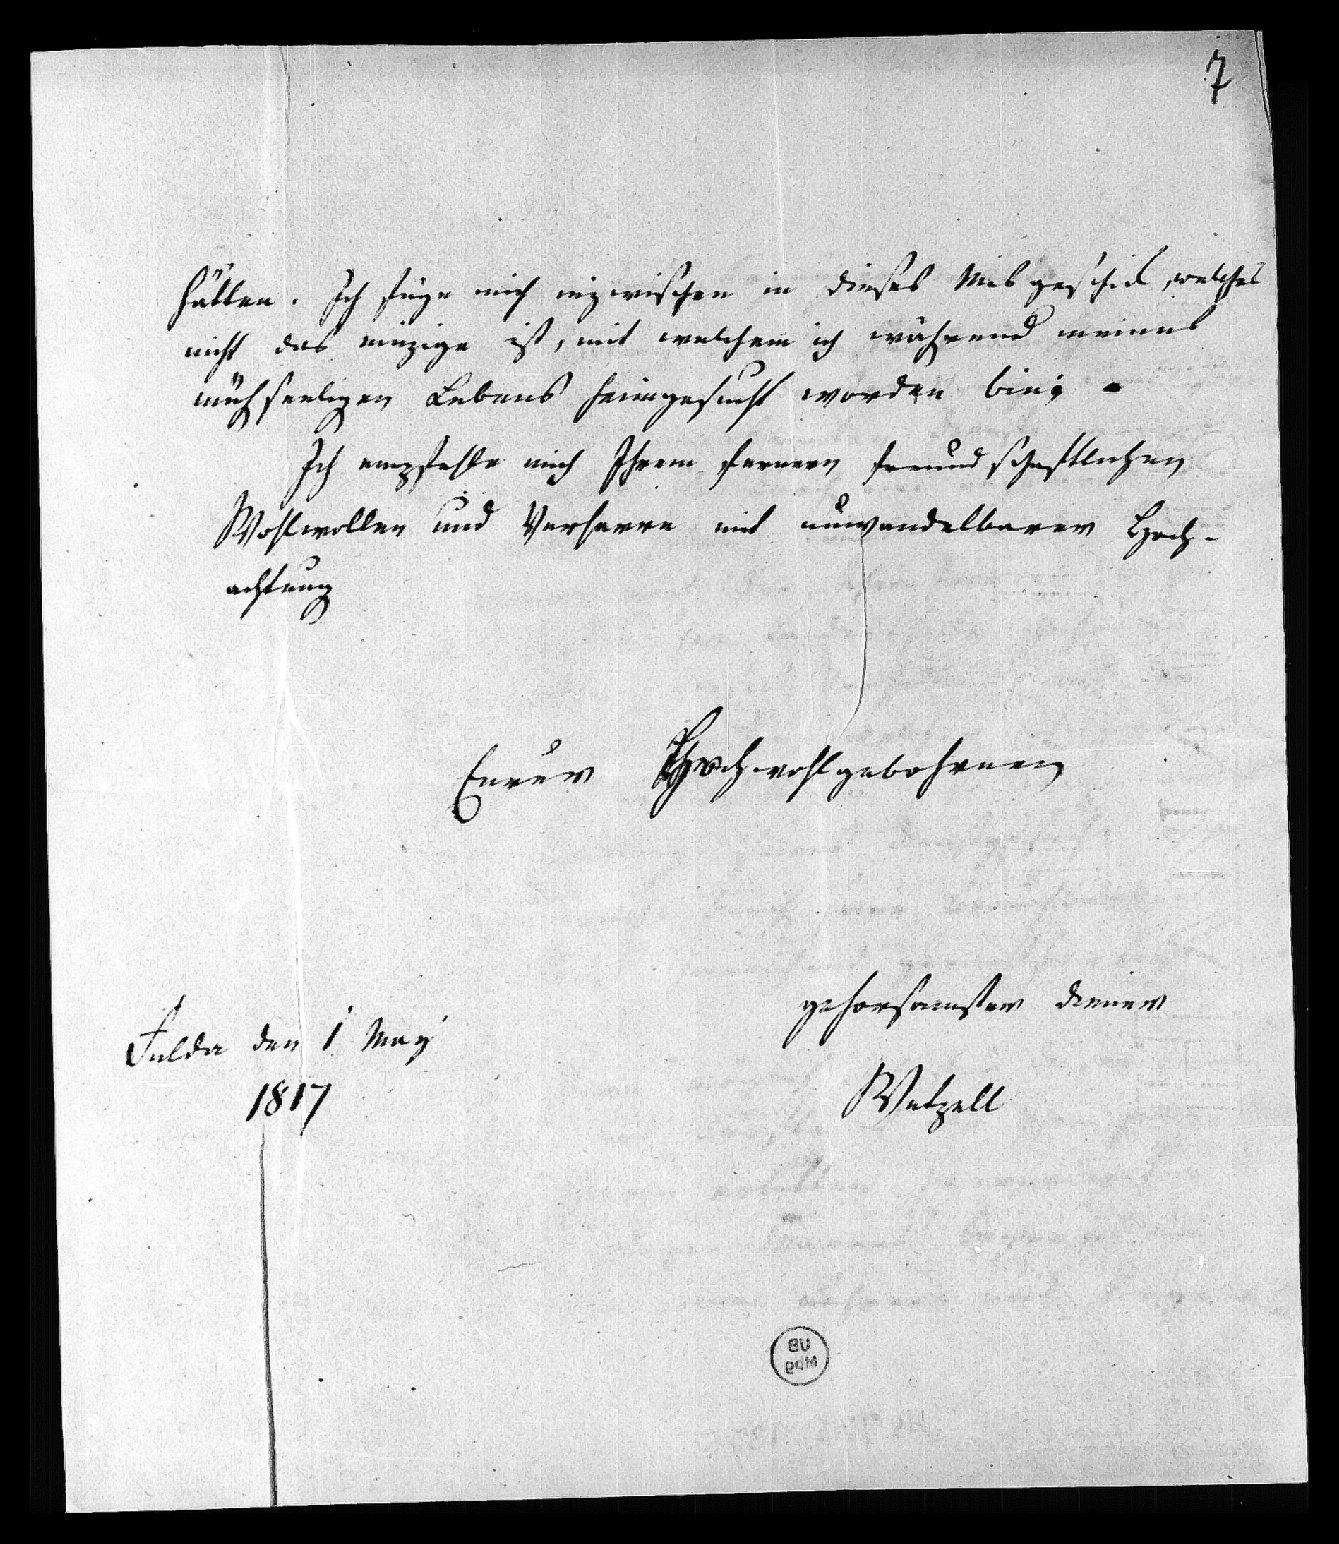 7
hätten. Ich füge mich inzwischen in dieses Misgeschick, welches
nicht das einzige ist, mit welchem ich während meines
mühseeligen Lebens heimgesucht worden bin; -
Ich empfehle mich Ihrem fernern freundschaftlichen
Wohlwollen und Verharre mit unwandelbarer Hoch-
achtung
Eurer Hochwohlgebohrnen
gehorsamster diener
Fulda den 1 May
1817
Wetzell
UB
Mbg